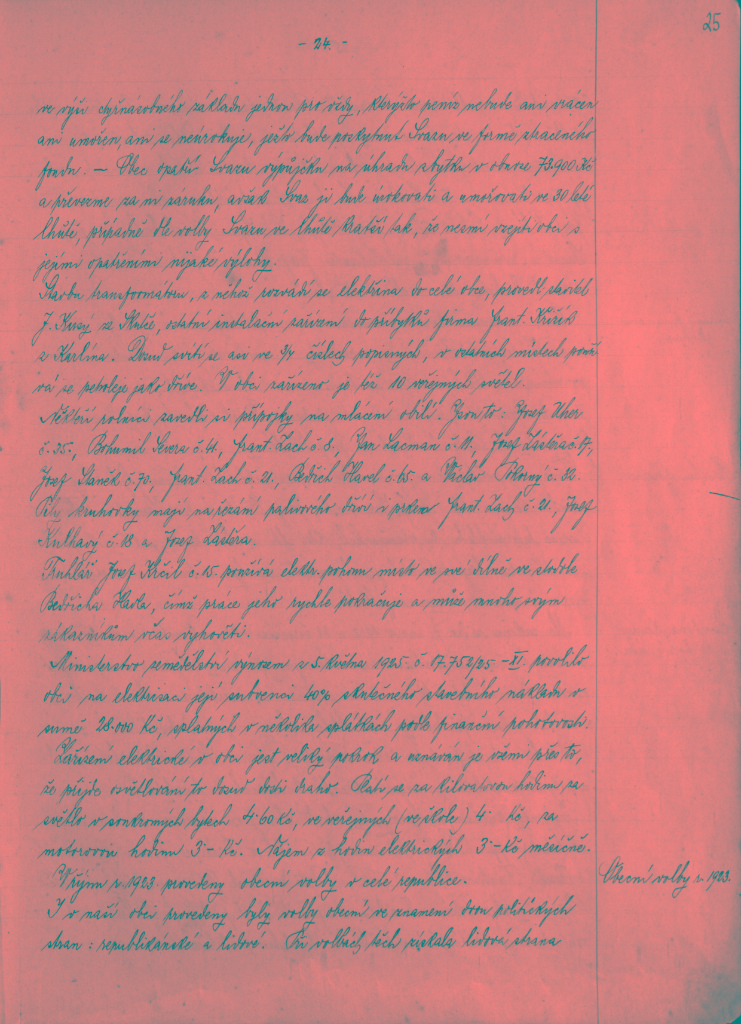 25
- 24. -
ve výši čtyřnásobného základu jednou pro vždy, kterýžto peníz nebude ani vrácen
ani umořen, ani se neúrokuje, ježto bude poskytnut Svazu ve formě ztraceného
fondu. - Obec opatří Svazu výpůjčku na úhradu zbytku v obnose 73.900 Kč
a převezme za ni záruku, avšak Svaz ji bude úrokovati a umořovati ve 30 leté
lhůtě, případně dle volby Svazu ve lhůtě kratší tak, že nesmí vzejíti obci s
jejími opatřeními nijaké výlohy.
Stavbu transformátoru, z něhož rozvádí se elektřina do celé obce, provedl stavitel
J. Kusý ze Skutče, ostatní instalační zařízení do příbytků firma Frant. Křižík
z Karlína. Dosud svítí se asi ve 3/4 číslech popisných, v ostatních místech použí
vá se petroleje jako dříve. V obci zařízeno je též 10 veřejných světel.
Někteří rolníci zavedli si přípojky na mlácení obilí. Jsou to: Josef Uher
č. 35., Bohumil Severa č. 41, Frant. Zach č 8., Jan Lacman č. 11., Josef Zástěra č. 17.,
Josef Staněk č. 70., Frant. Zach č. 21., Bedřich Havel č. 65. a Václav Pokorný č. 32.
Pily kruhovky mají na řezání palivového dříví i prken Frant. Zach č. 21., Josef
Kulhavý č. 18 a Josef Zástěra.
Truhlář Josef Krčil č. 15. používá elektr. pohonu místo ve své dílně ve stodole
Bedřicha Havla, čímž práce jeho rychle pokračuje a může mnoho svým
zákazníkům včas vyhověti.
Ministerstvo zemědělství výnosem z 5. května 1925. č. 17.752/25. - XI. povolilo
obci na elektrisaci její subvenci 40% skutečného stavebního nákladu v
sumě 28.000 Kč, splatných v několika splátkách podle finanční pohotovosti.
Zařízení elektrické v obci jest veliký pokrok a uznáván je všemi přes to,
že přijde osvětlování to dosud dosti draho. Platí se za kilovatovou hodinu za
světlo v soukromých bytech 4·60 Kč, ve veřejných (ve škole) 4·- Kč, za
motorovou hodinu 3·- Kč. Nájem z hodin elektrických 3·- Kč měsíčně.
V říjnu r. 1923 provedeny obecní volby v celé republice.
Obecní volby r. 1923.
I v naší obci provedeny byly volby obecní ve znamení dvou politických
stran: republikánské a lidové. Při volbách těch získala lidová strana